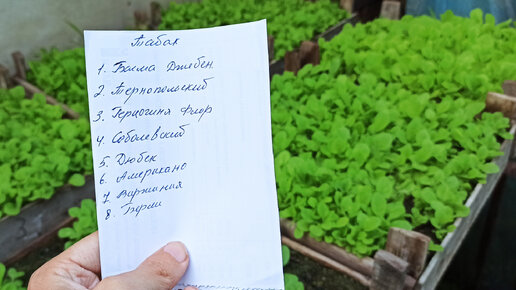 Табак
1. Басма Джебел
2 Тернопольский
3. Герцогиня Флор
4. Соболевский
5. Дюбек
6. Американо
7 Виржиния
8. Берли